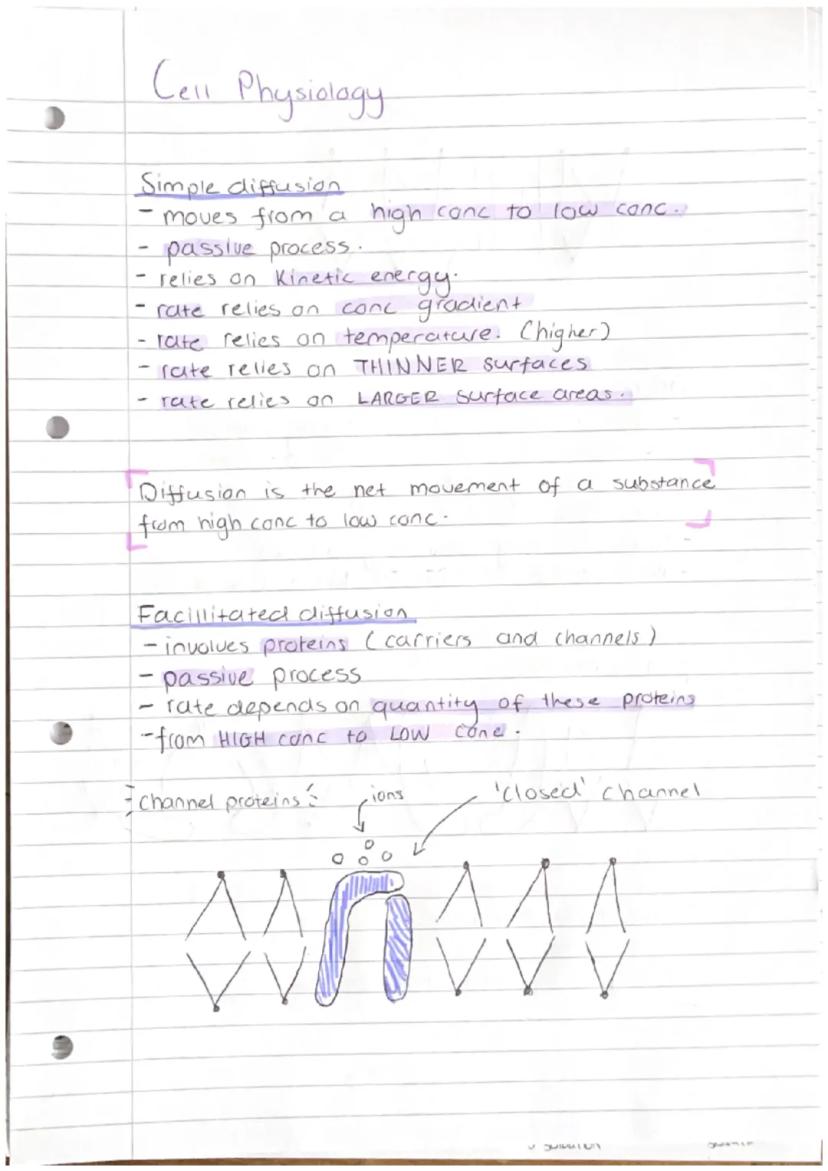 Cell Physiology
Simple diffusion
- moves from a high conc to low conc.
- passive process.
- relies on Kinetic energy.
- rate relies on conc gradient
- rate relies on temperature. (higher)
- rate relies on THINNER surfaces
- rate relies on LARGER surface areas.
Diffusion is the net movement of a substance
from high conc to low conc.
Facillitated diffusion
- involves proteins (carriers and channels)
- passive process
- rate depends on quantity of these proteins
- from HIGH conc to LOW conc.
channel proteins
ions
'closed' channel